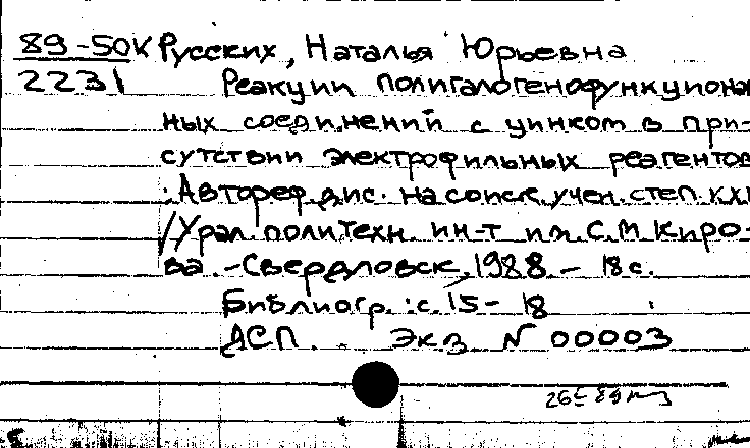 89-50к Русских, Наталья Юрьевна
2231 Реакции полигалогенофункционал
ных соединений с цинком в при-
сутствии электрофильных реагентов
: Автореф. дис. на соиск. учен. степ. к.х.н
/Урал. политехн. ин-т им. С.М. Киро-
ва. -Свердловск, 1988 - 18 с.
Библиогр.: с. 15 - 18
ДСП. Экз N 00003